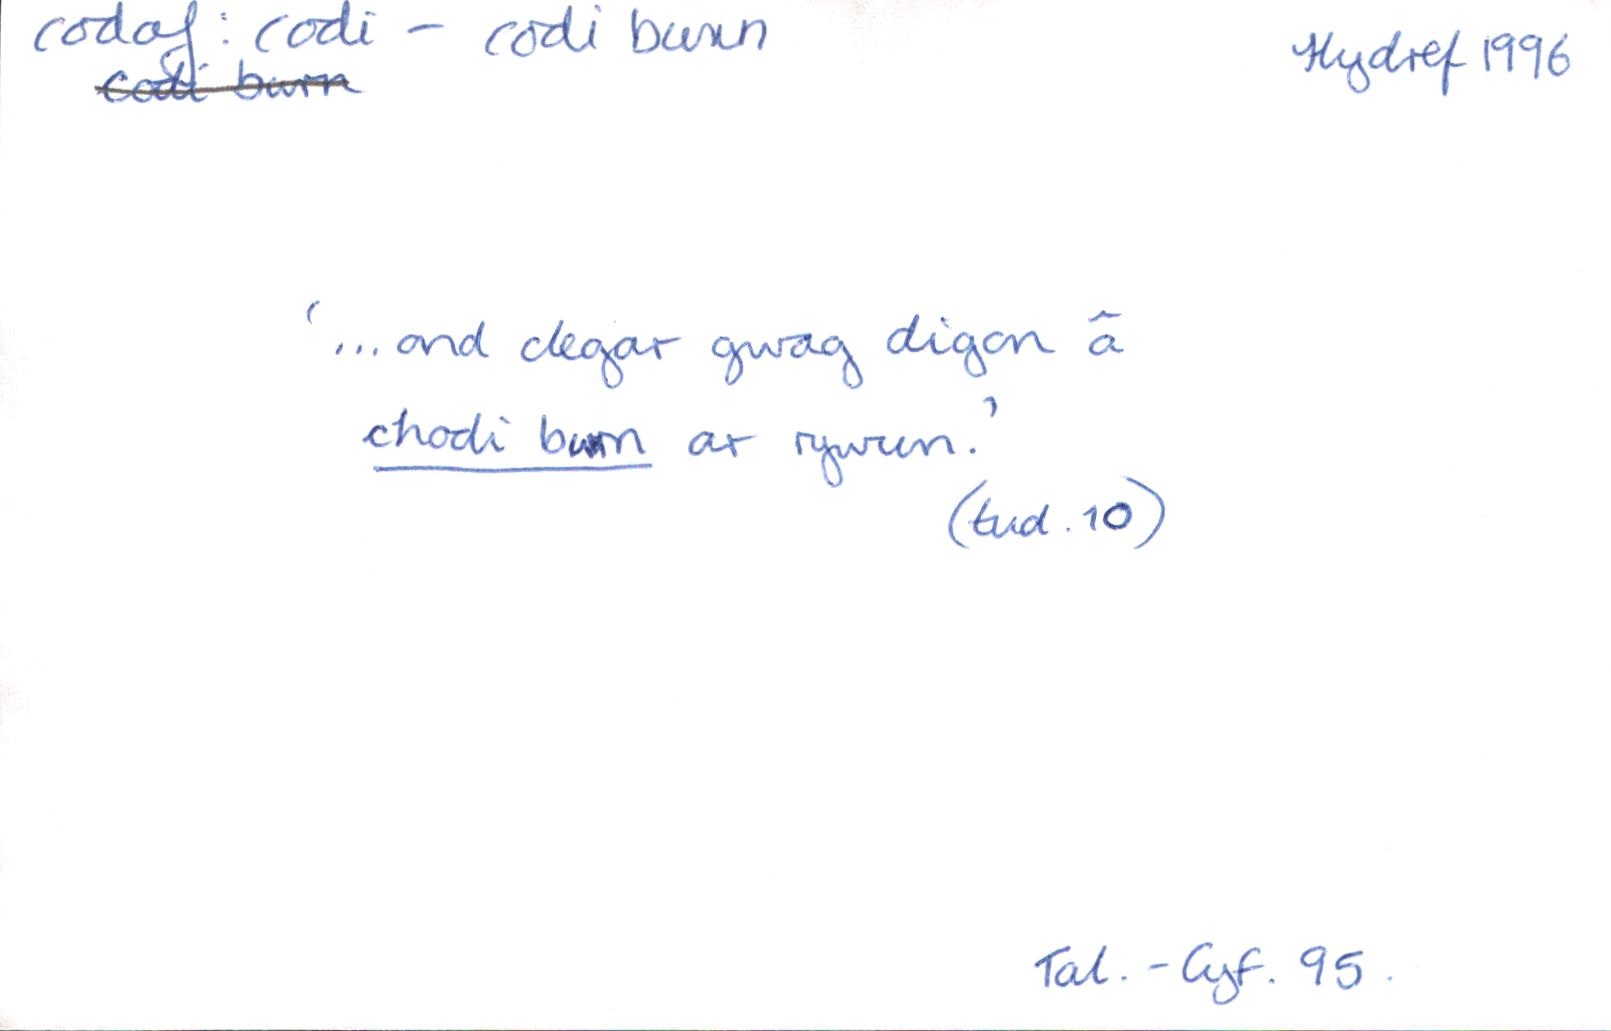 codaf: codi – codi bwrn
Hydref 1996
codi bwrn
'... ond clegar gwag digon â
chodi bwrn ar rywun.'
(tud. 10)
Tal. - Cyf. 95.